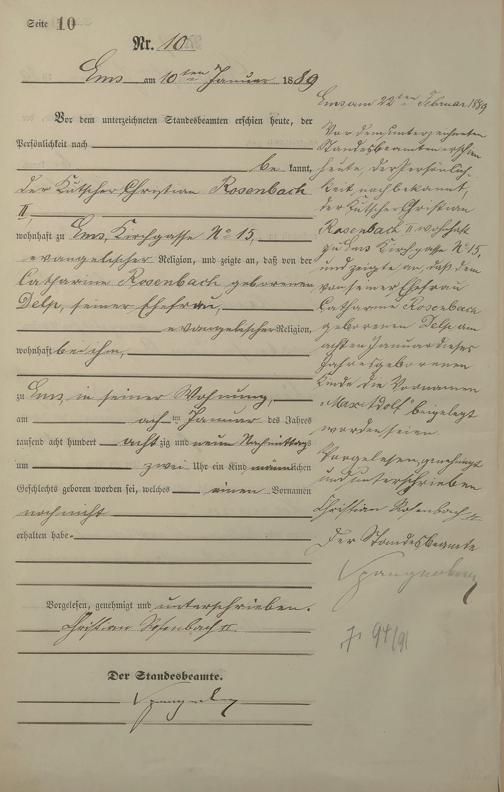 Seite 10
Nr. 10
Ems am 10ten Januar 1889
Vor dem unterzeichneten Standesbeamten erschien heute, der
Persönlichkeit nach
be kannt,
der Kutscher Christian Rosenbach
II,
wohnhaft zu Ems, Kirchgasse No 15,
evangelischer Religion, und zeigte an, daß von der
Catharine Rosenbach geborenen
Delp, seiner Ehefrau,
evangelischer Religion,
wohnhaft bei ihm,
zu Ems in seiner Wohnung,
am achten Januar des Jahres
tausend acht hundert achtzig und neun Nachmittags
um zwei Uhr ein Kind männlichen
Geschlechts geboren worden sei, welches einen Vornamen
noch nicht
erhalten habe
Vorgelesen, genehmigt und unterschrieben.
Christian Rosenbach II.
Der Standesbeamte.
Spangenberg
Ems am 22ten Februar 1889
Vor dem unterzeichneten
Standesbeamten erschien
heute, der Persönlich-
keit nach bekannt,
der Kutscher Christian
Rosenbach II wohnhaft
zu Ems Kirchgasse No 15,
und zeigte an, daß dem
von seiner Ehefrau
Catharine Rosenbach
geborenen Delp am
achten Januar dieses
Jahres geborenen
Kinde die Vornamen
"Max Adolf" beigelegt
worden seien.
Vorgelesen, genehmigt
und unterschrieben
Christian Rosenbach II.
Der Standesbeamte
Spangenberg
94/91